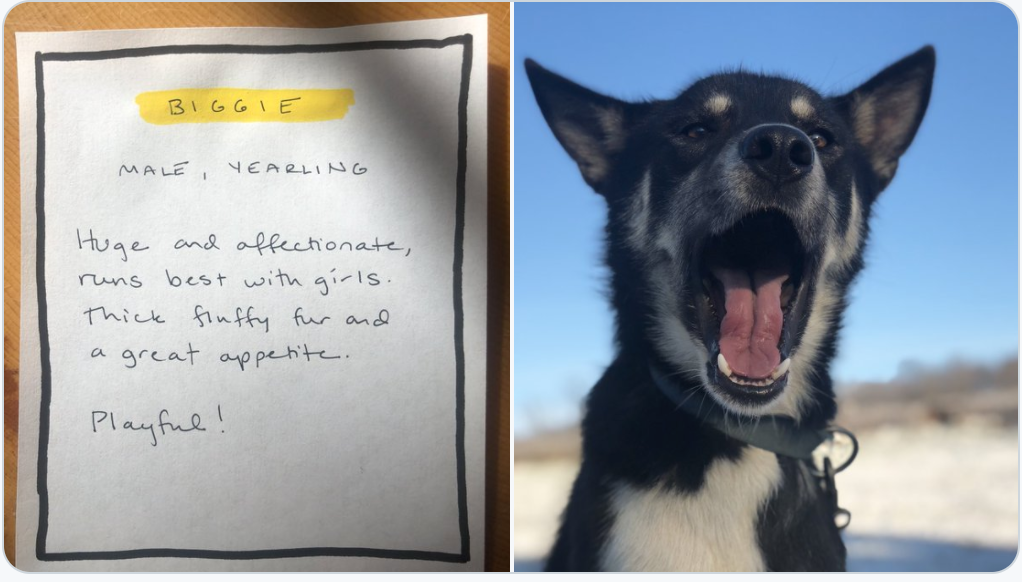 BIGGIE
MALE, YEARLING
Huge and affectionate,
runs best with girls.
Thick fluffy fur and
a great appetite.
Playful!